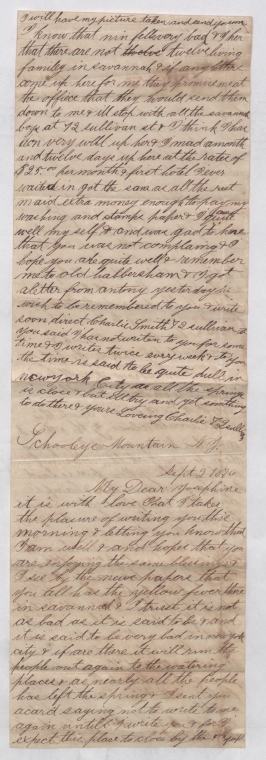 I will have my picture taken and and you en
I know that min fellevery bad & I her
that there are not twelve living
familey in savannah & if any letter
come up here for me they promise me at
the office that they would send them
down to me & ill stop with all the savannah
boys at 72 sullivan st & I think I has
don very well up her & I mad a month
and twelve days up here at the rates of
$25.00 her month & first hotel I ever
waited in got the sam as all the rest
maid extra money enough to pay my
waching and stamps paper & I quite
well my self & and was gad to hear
that you was not complaing & I
hope you are quite well & remember
me to old habbersham & I got
a letter from antony yesterday he
wish to be remembered to you & write
soon direct Charlie Smith 72 sullivan st
you said I has not writen to you for some
time & I writes twice every week to you
the time is said to be quite dull in
newyork City as all the springs
is close & but Ill try and get something
to do there & yours Loveing Charlie
Schooleye Mountain N.J.
Sept 2 1876
My Dear Josephine
it is with love that I takes
the plasure of writing you this
morning & letting you know that
I am well & and hopes that you
are enjoying the same blessing &
I see by the newe papers that
you tell has the yellow fever there
in savannah & I trust it is not
as bad as it is said to be & and
it is said to be very bad in new york
city & if are there it will run the
people out again to the watering
places & as nearly all the people
has left the springs & I sent you
a card saying not to write to me
again until I write you & for I
expect this place to close by the